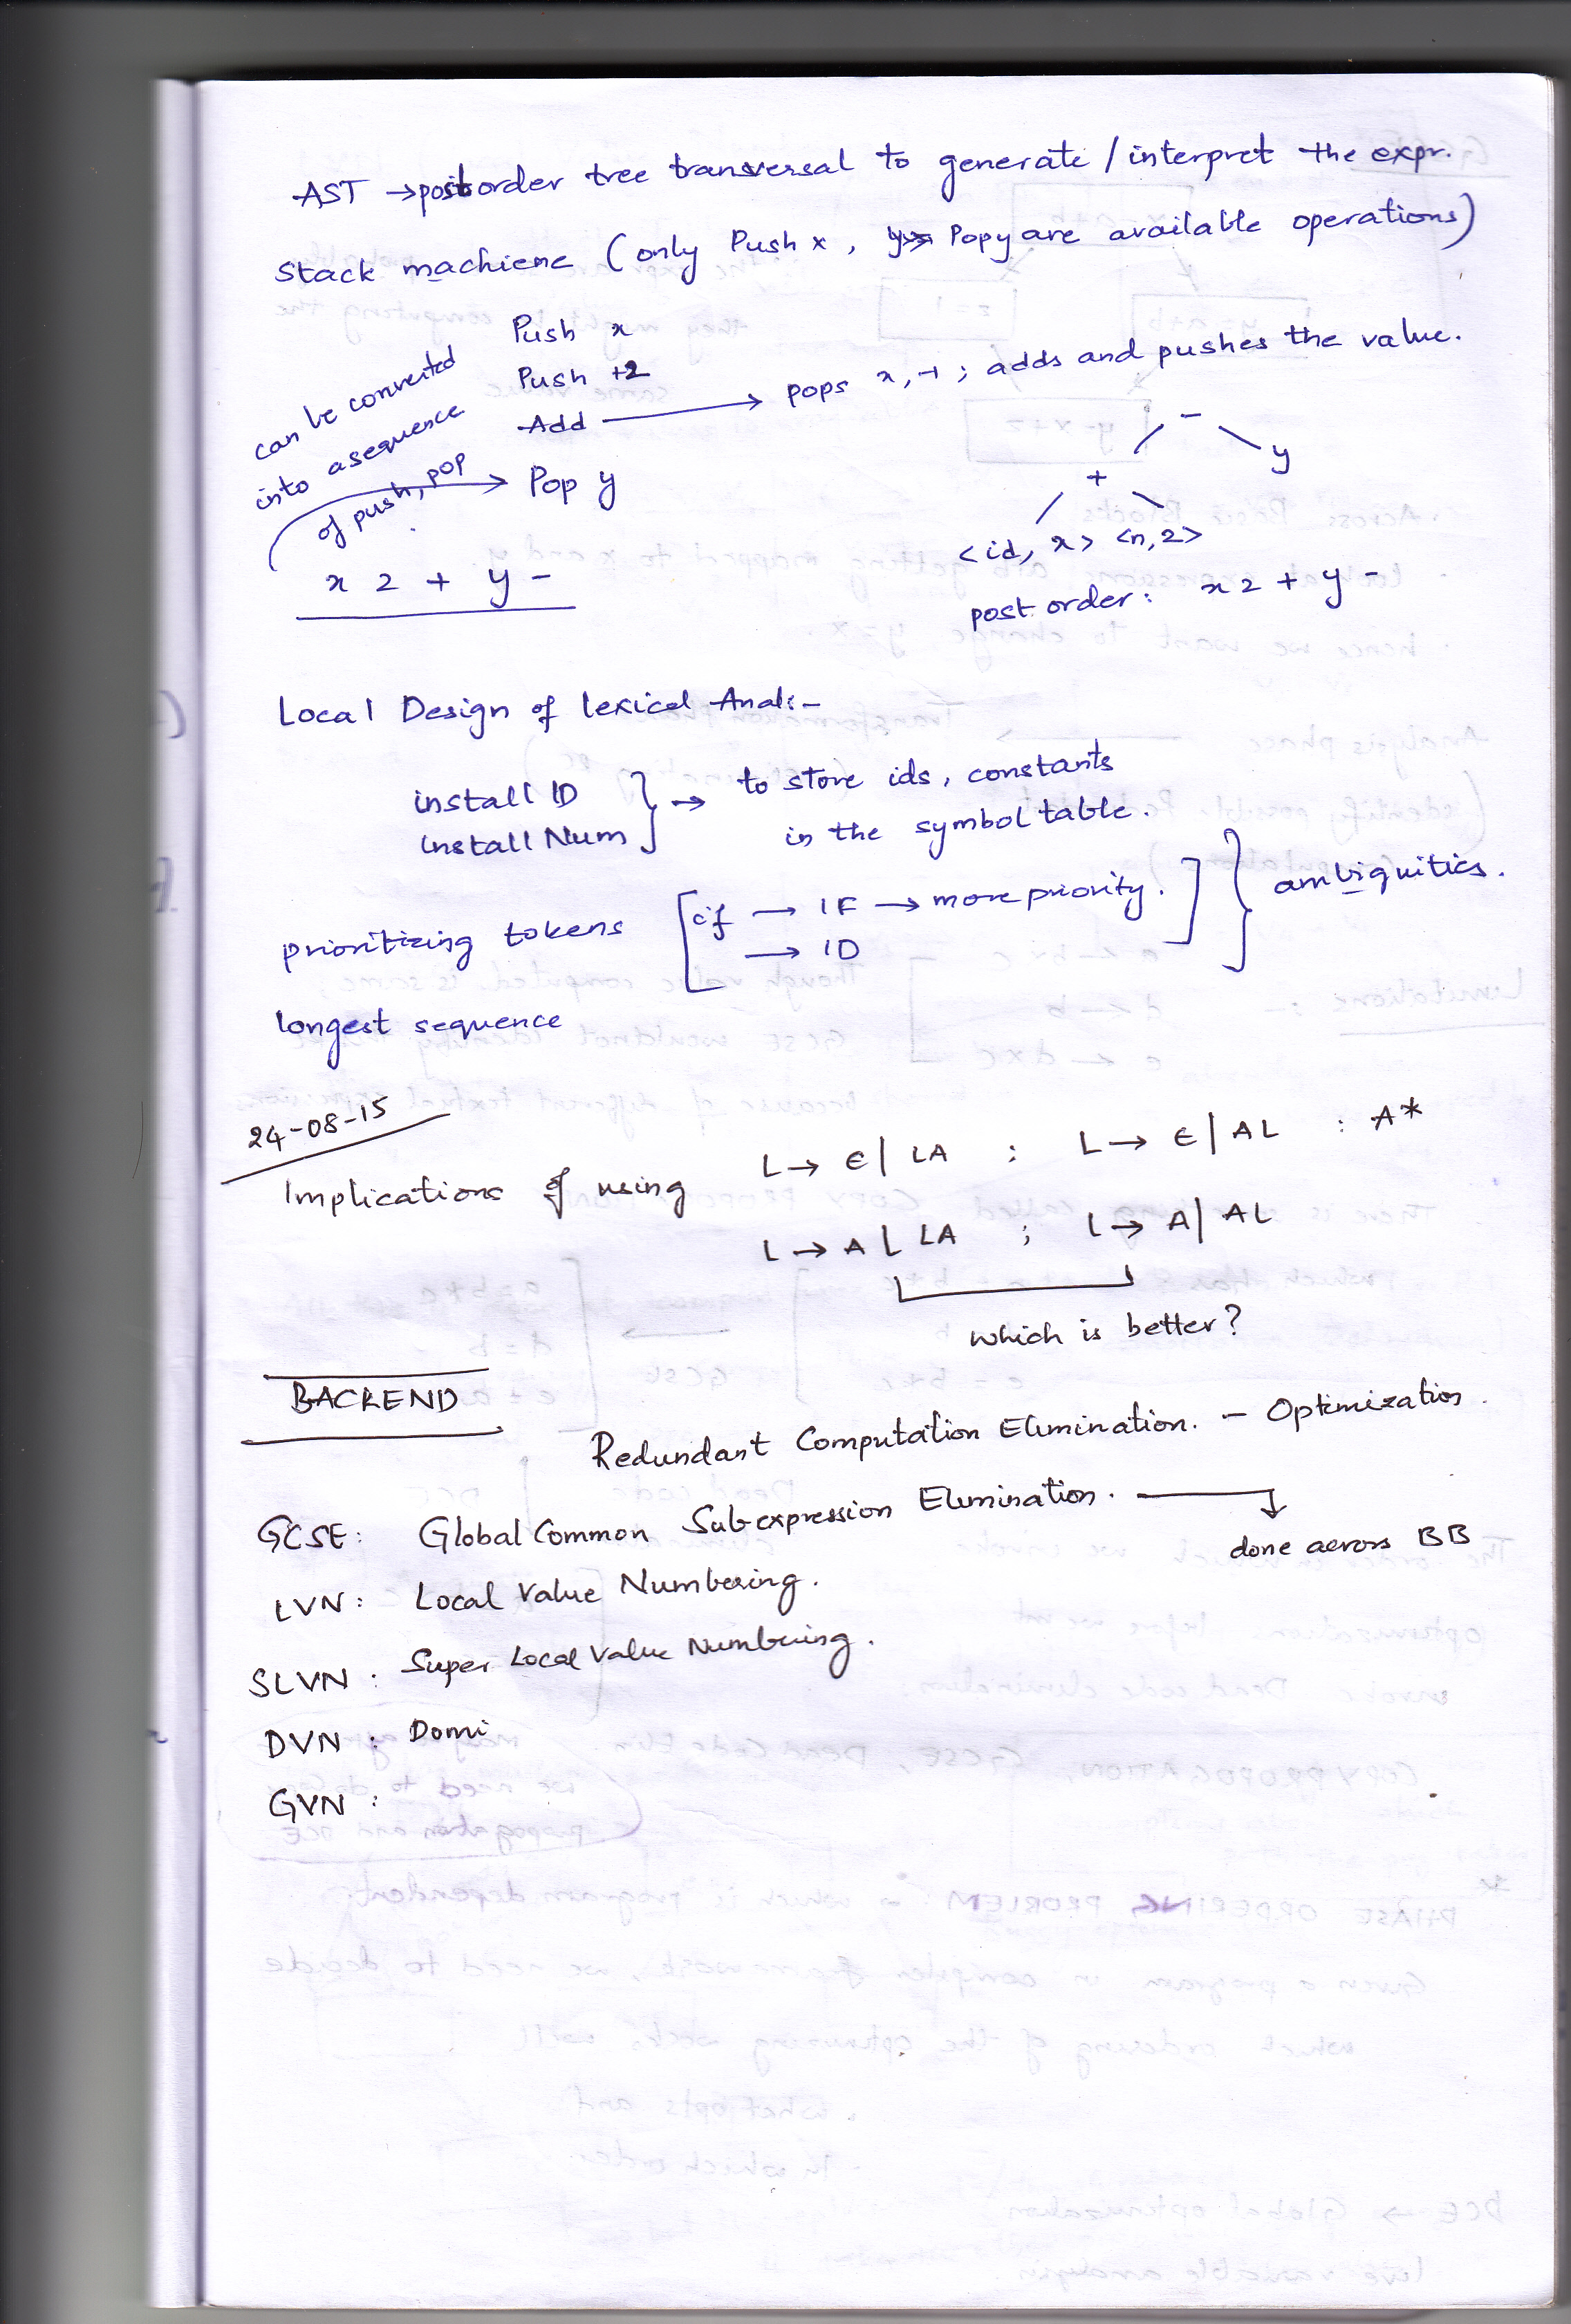 AST → postorder tree transversal to generate / interpret the expr.
Stack machiene (only Push x, Pop y are available operations)
can be converted
into a sequence
of push, pop
Push x
Push +2
Add → pops x, -1 ; adds and pushes the value.
Pop y
x 2 + y -
-
+ y
<id, x> <n, 2>
post order : x 2 + y -
Local Design of lexical Anal:-
install ID
install Num } → to store ids, constants
in the symbol table.
prioritizing tokens [ if → IF → more priority. ] } ambiguities.
→ ID
longest sequence
24-08-15
Implications of using L → ε | LA ; L → ε | AL : A*
L → A | LA ; L → A | AL
which is better?
BACKEND
Redundant Computation Elimination. - Optimization.
GCSE : Global Common Subexpression Elimination. → done across BB
LVN : Local Value Numbering.
SLVN : Super Local Value Numbering.
DVN : Domi
GVN :